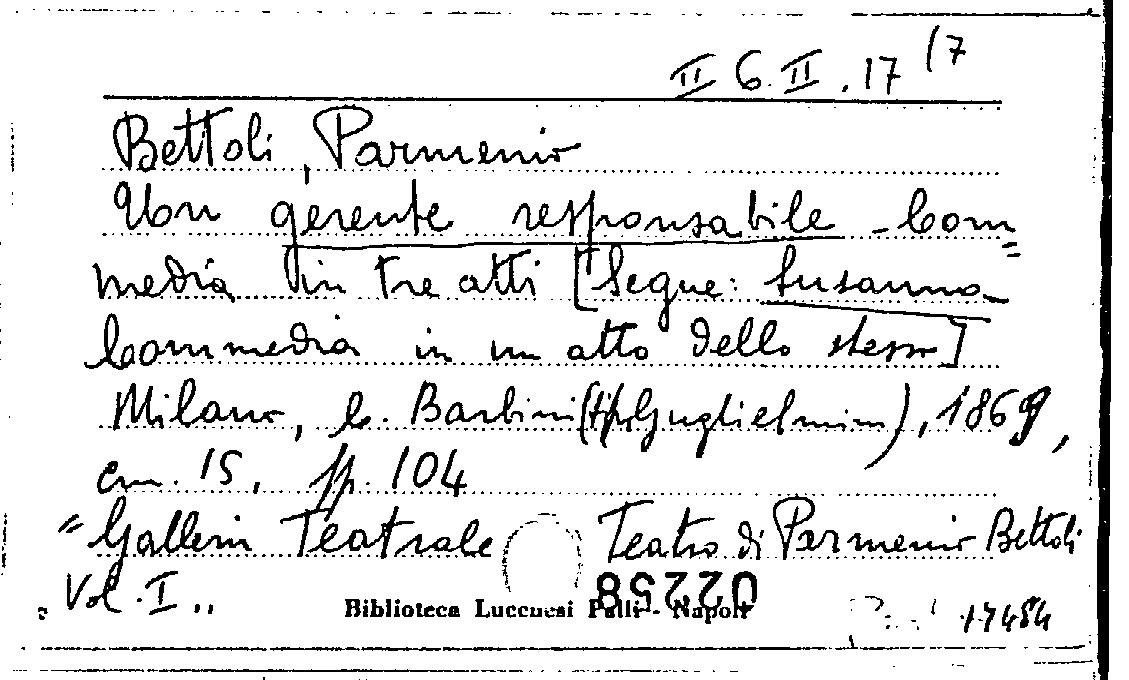 II 6. II. 17 (7
Bettoli, Parmenio
Un gerente responsabile - Com=
media in tre atti [Segue: Susanna
Commedia in un atto dello stesso]
Milano, C. Barbini (tip. Guglielmini), 1869,
cm. 15, pp. 104
"Galleria Teatrale Teatro di Parmenio Bettoli
Vol. I"
02258
Biblioteca Lucchesi Palli - Napoli
17484